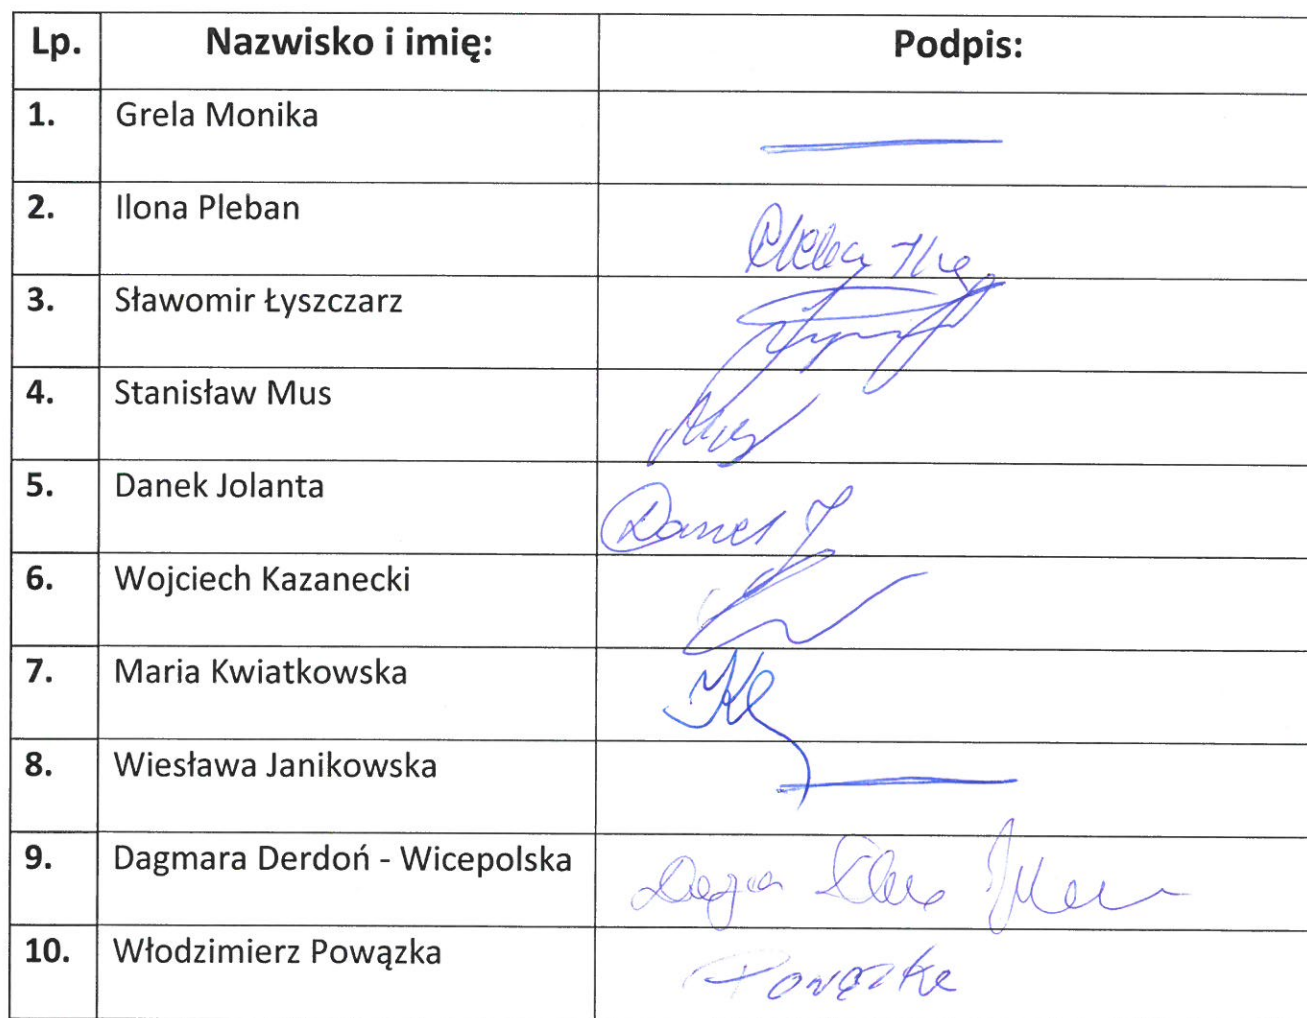 Lp. Nazwisko i imię: Podpis:
1. Grela Monika
2. Ilona Pleban
3. Sławomir Łyszczarz
4. Stanisław Mus
5. Danek Jolanta Danek J
6. Wojciech Kazanecki
7. Maria Kwiatkowska
8. Wiesława Janikowska
9. Dagmara Derdoń - Wicepolska
10. Włodzimierz Powązka Powązka